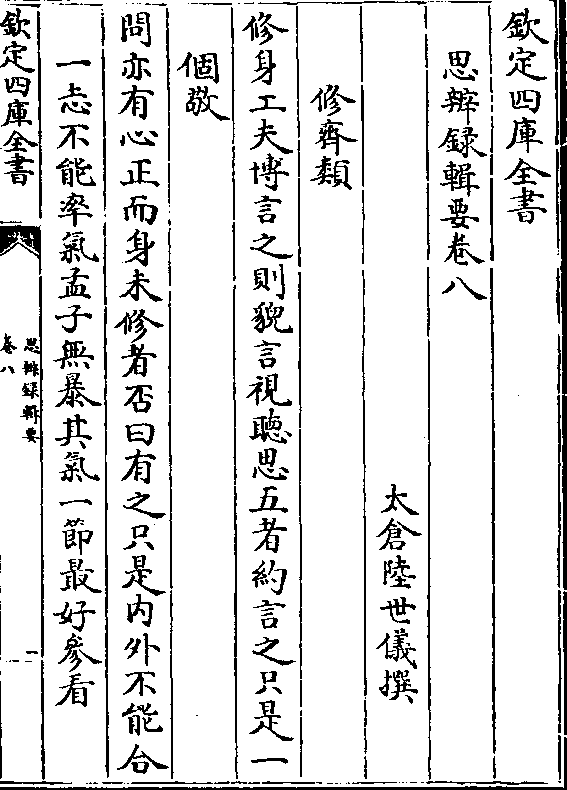 欽定四庫全書
思辨録輯要卷八
太倉陸世儀撰
修齊類
修身工夫博言之則貌言視聽思五者約言之只是一
個敬
問亦有心正而身未修者否曰有之只是内外不能合
一志不能率氣孟子無暴其氣一節最好參看
欽定四庫全書
思辨録輯要
卷八
一